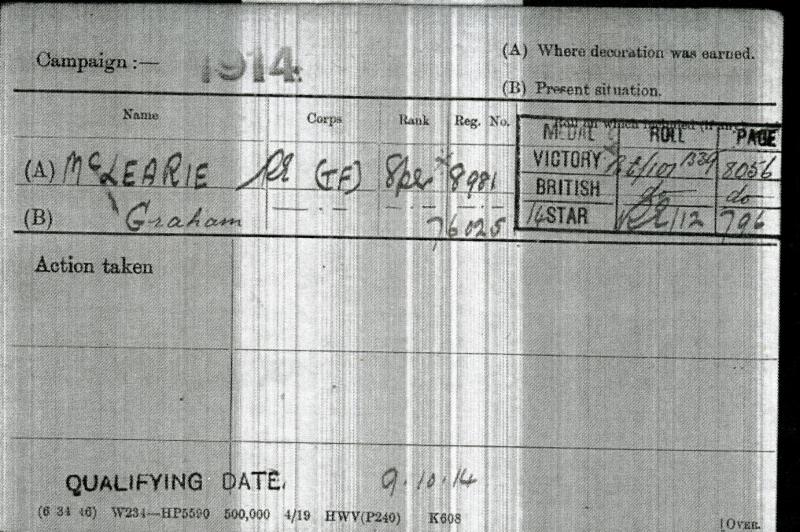 Campaign :— 1914. (A) Where decoration was earned.
(B) Present situation.
Name Corps Rank Reg. No. Roll on which included (if any).
MEDAL ROLL PAGE
(A) McLEARIE RE (TF) Spr 8981 VICTORY RE/101 B39 8056
BRITISH do do
(B) Graham 76025 14 STAR RE/12 796
Action taken
QUALIFYING DATE. 9.10.14
(6 34 46) W234—HP5590 500,000 4/19 HWV(P240) K608 [OVER.